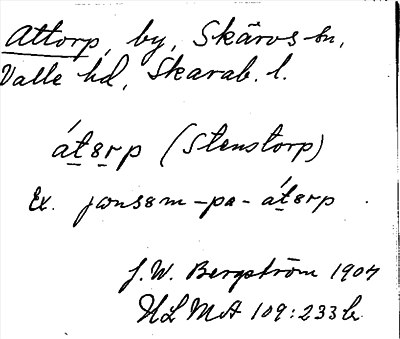 Attorp, by, Skärvs sn,
Valle hd, Skarab. l.
át8rp (Stenstorp)
Ex. jans8m-pa-át8rp.
J. W. Bergström 1904
ULMA 109:233 b